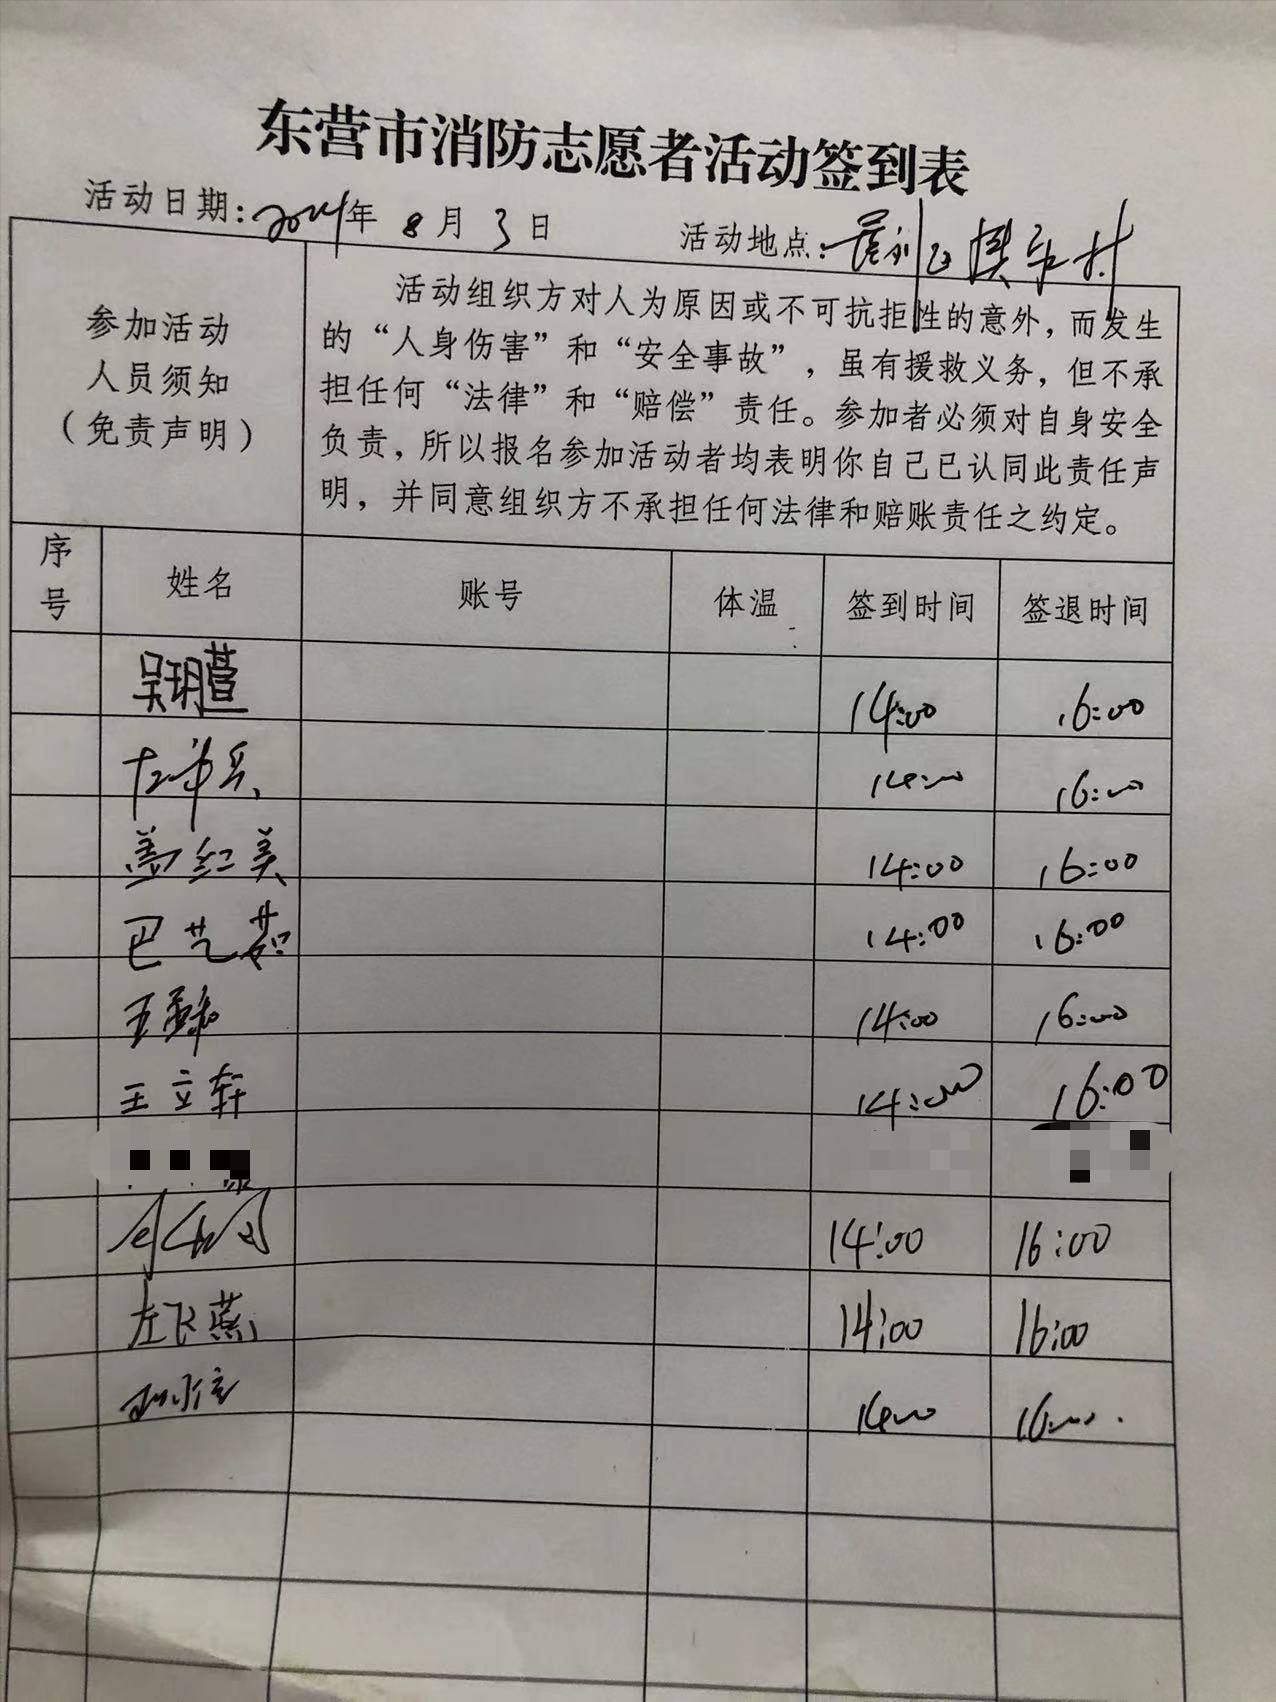 东营市消防志愿者活动签到表
活动日期：2024年 8月 3日 活动地点：
参加活动
人员须知
（免责声明）
活动组织方对人为原因或不可抗拒性的意外，而发生
的“人身伤害”和“安全事故”，虽有援救义务，但不承
担任何“法律”和“赔偿”责任。参加者必须对自身安全
负责，所以报名参加活动者均表明你自己已认同此责任声
明，并同意组织方不承担任何法律和赔账责任之约定。
序号 姓名 账号 体温 签到时间 签退时间
吴玥萱 14:00 16:00
14:00 16:00
盖红美 14:00 16:00
巴艺茹 14:00 16:00
王 14:00 16:00
王立轩 14:00 16:00
14:00 16:00
左飞燕 14:00 16:00
14:00 16:00